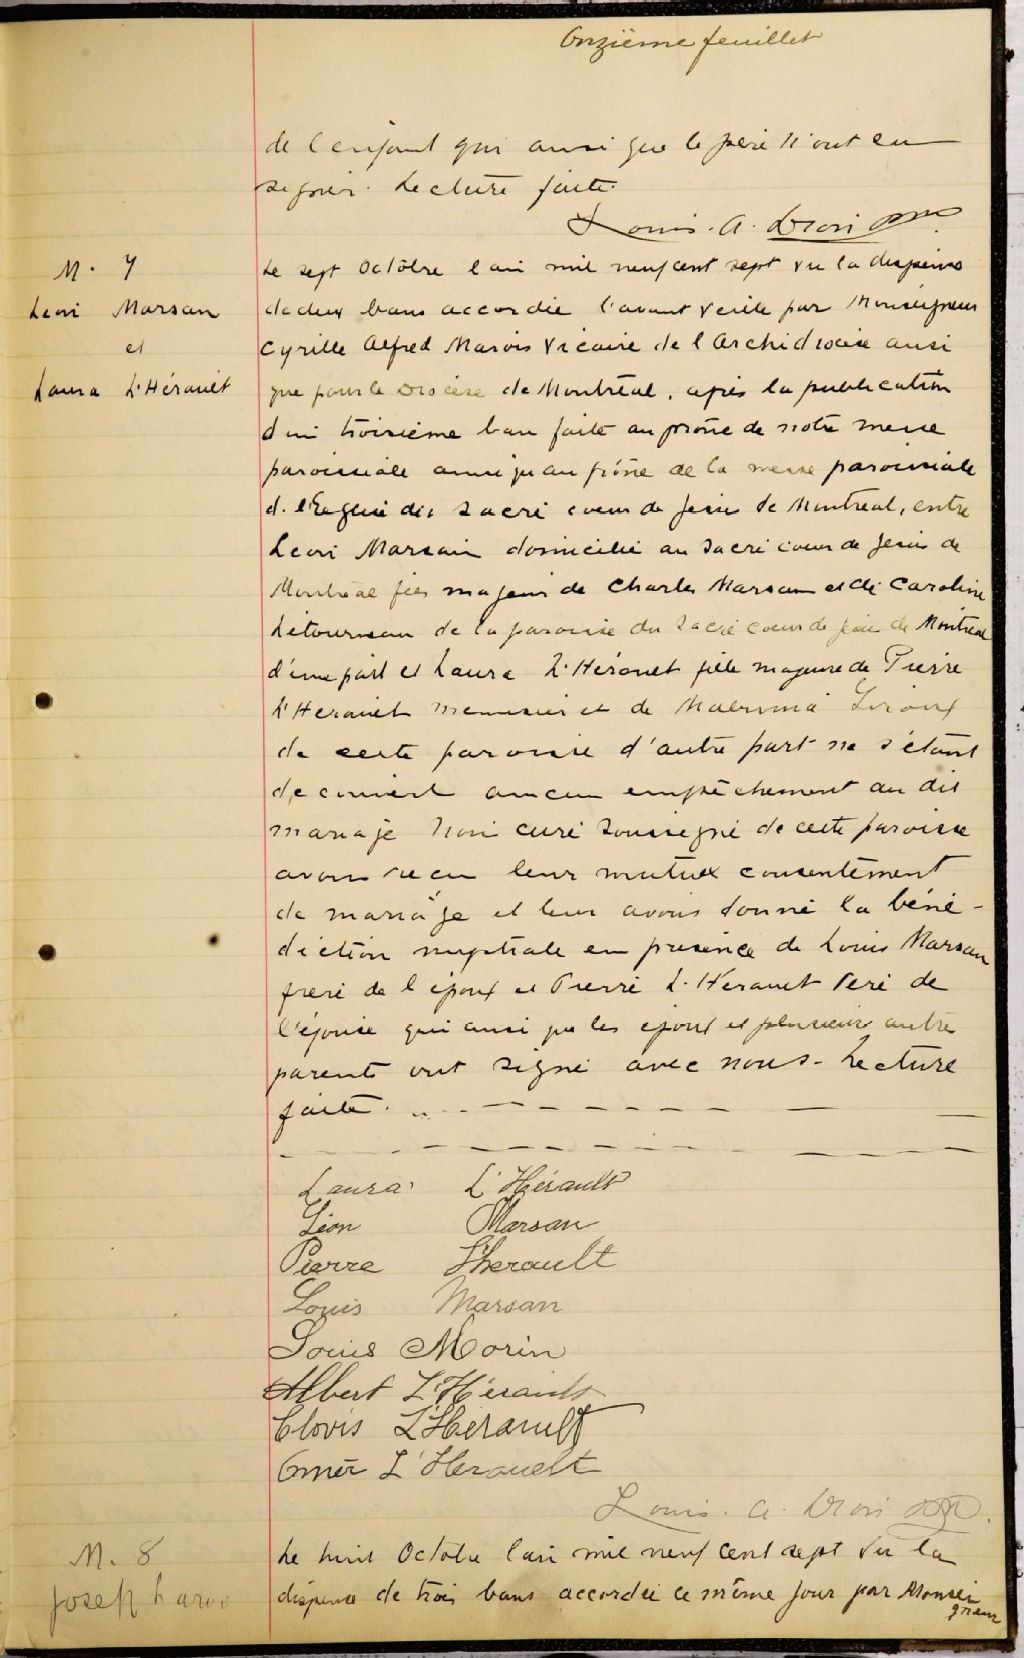 Onzième feuillet
de l enfant qui ainsi que le père n'ont su
signer. Lecture faite.
Louis. A. Dion ptre
M. 7
Léon Marsan
et
Laura L'Hérault
Le sept Octobre l an mil neuf cent sept vu la dispense
de deux bans accordée l'avant veille par Monseigneur
Cyrille Alfred Marois Vicaire de l Archidiocèse ainsi
que pour le Diocèse de Montréal, après la publication
d un troisième ban faite au prône de notre messe
paroissiale ainsi qu au prône de la messe paroissiale
d. l'Eglise du Sacré coeur de Jésus de Montréal, entre
Léon Marsan domicilié au Sacré coeur de Jésus de
Montréal fils majeur de Charles Marsan et de Caroline
Létourneau de la paroisse du Sacré coeur de Jésus de Montréal
d'une part et Laura L'Hérault fille majeure de Pierre
L'Herault menuisier et de Malvina Giroux
de cette paroisse d'autre part ne s'étant
decouvert aucun empêchement au dit
mariage Nous curé soussigné de cette paroisse
avons reçu leur mutuel consentement
de mariage et leur avons donné la béné-
diction nuptiale en présence de Louis Marsan
frère de l époux et Pierre L'Hérault Père de
l'épouse qui ainsi que les époux et plusieurs autre
parents ont signé avec nous - Lecture
faite.
Laura L'Hérault
Léon Marsan
Pierre Lherault
Louis Marsan
Louis Morin
Albert L'Hérault
Clovis L'Hérault
Omer L'Herault
Louis. A. Dion ptre.
M. 8
Joseph
Le huit Octobre l an mil neuf cent sept Vu la
dispense de trois bans accordée ce même jour par Monsei
gneur